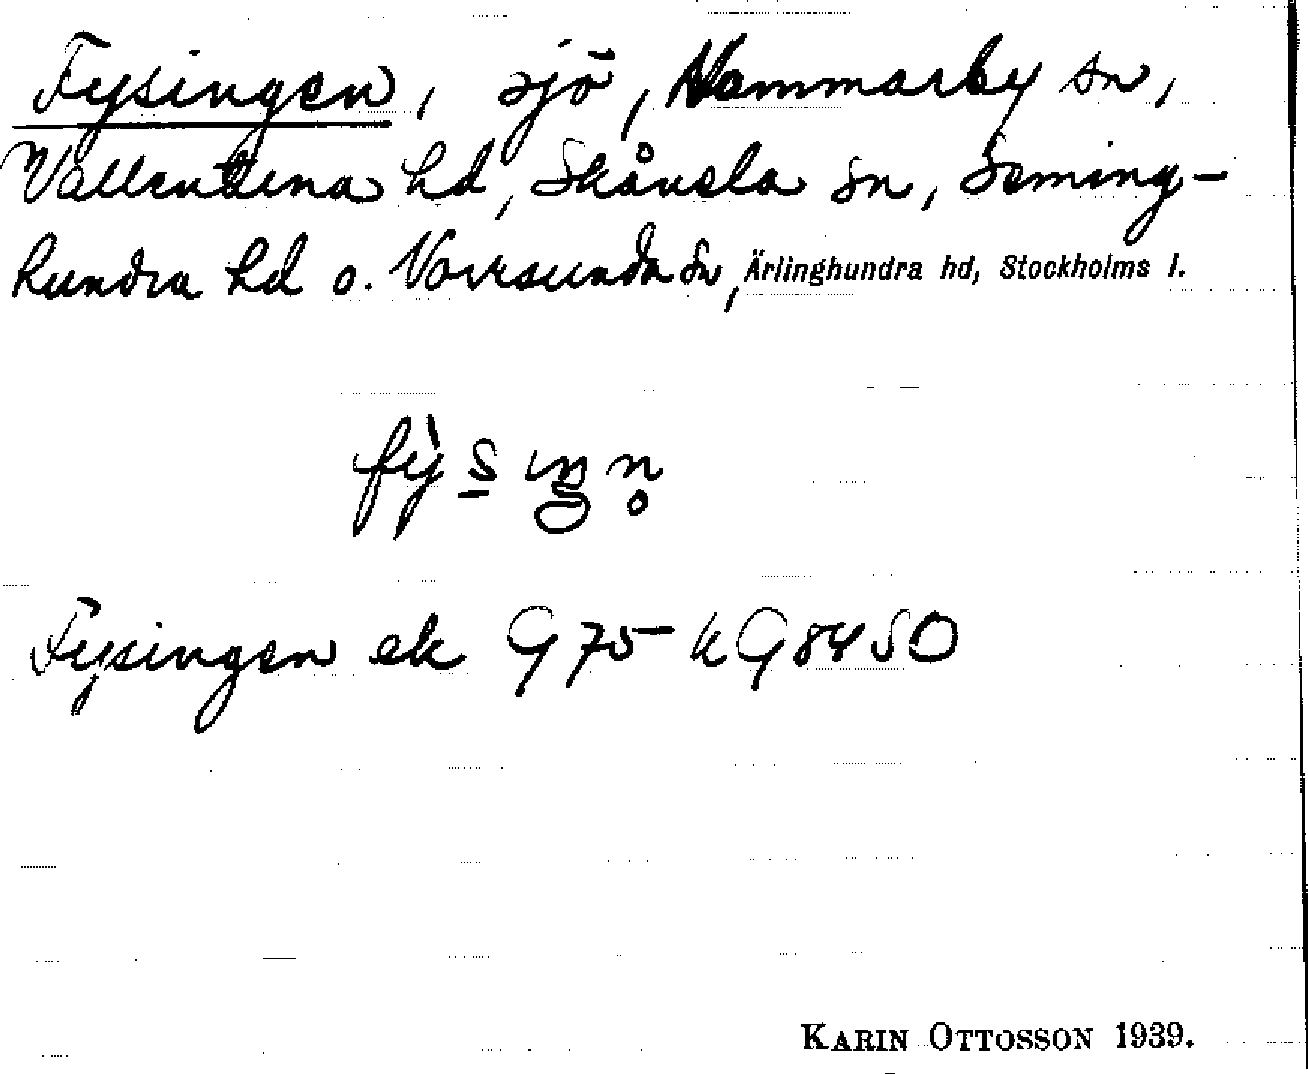 Fysingen, sjö, Hammarby sn,
Vallentuna hd, Skånela sn, Seming-
hundra hd o. Norrsunda sn, Ärlinghundra hd, Stockholms l.
Fysingen ek G 75 k G 84 SO
KARIN OTTOSSON 1939.